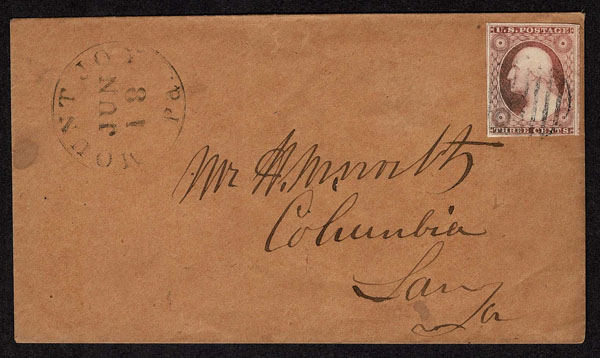 MOUNT JOY Pa.
JUN
18
U.S. POSTAGE
THREE CENTS
Mr H.
Columbia
Lan